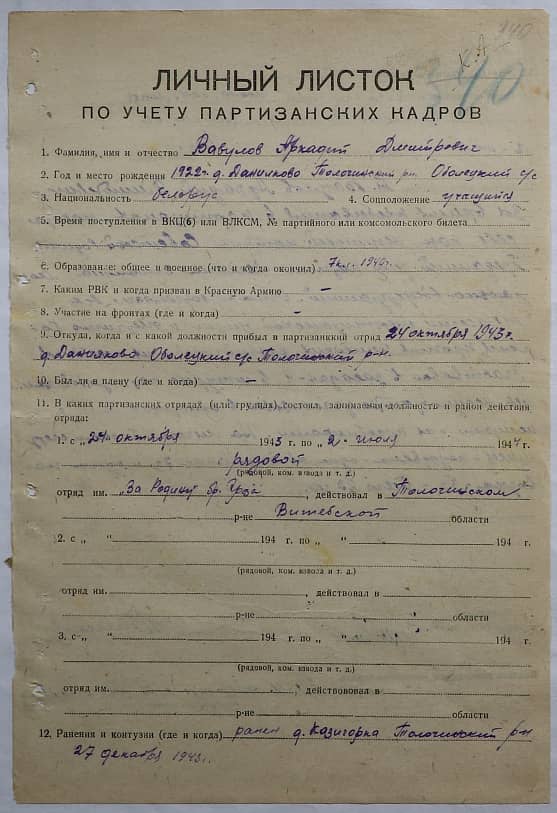 340
К. А.
340
ЛИЧНЫЙ ЛИСТОК
ПО УЧЕТУ ПАРТИЗАНСКИХ КАДРОВ
1. Фамилия, имя и отчество Вавулов Аркадий Дмитрович
2. Год и место рождения 1922 г. д. Даньково Толочинский рн. Оболецкий с/с
3. Национальность белорус 4. Соцположение учащийся
5. Время поступления в ВКЦ(б) или ВЛКСМ, № партийного или комсомольского билета
—
6. Образование: общее и военное (что и когда окончил) 7 кл. 1940 г.
7. Каким РВК и когда призван в Красную Армию —
8. Участие на фронтах (где и когда) —
9. Откуда, когда и с какой должности прибыл в партизанский отряд 24 октября 1943 г.
д. Даньково Оболецкий с/с Толочинский р-н.
10. Был ли в плену (где и когда) —
11. В каких партизанских отрядах (или группах) состоял, занимаемая должность и район действия
отряда:
1. с „24" октября 1943 г. по „2" июля 1944 г.
рядовой
(рядовой, ком. взвода и т. д.)
отряд им. „За Родину" бр. действовал в Толочинском
р-не Витебской области
2. с „ “ 194 г. по „ “ 194 г.
(рядовой, ком. взвода и т. д.)
отряд им. действовал в
р-не области
3. с „ “ 194 г. по „ “ 194 г.
(рядовой, ком. взвода и т. д.)
отряд им. действовал в
р-не области
12. Ранения и контузии (где и когда) ранен д. Казигорка Толочинский р-н
27 декабря 1943 г.